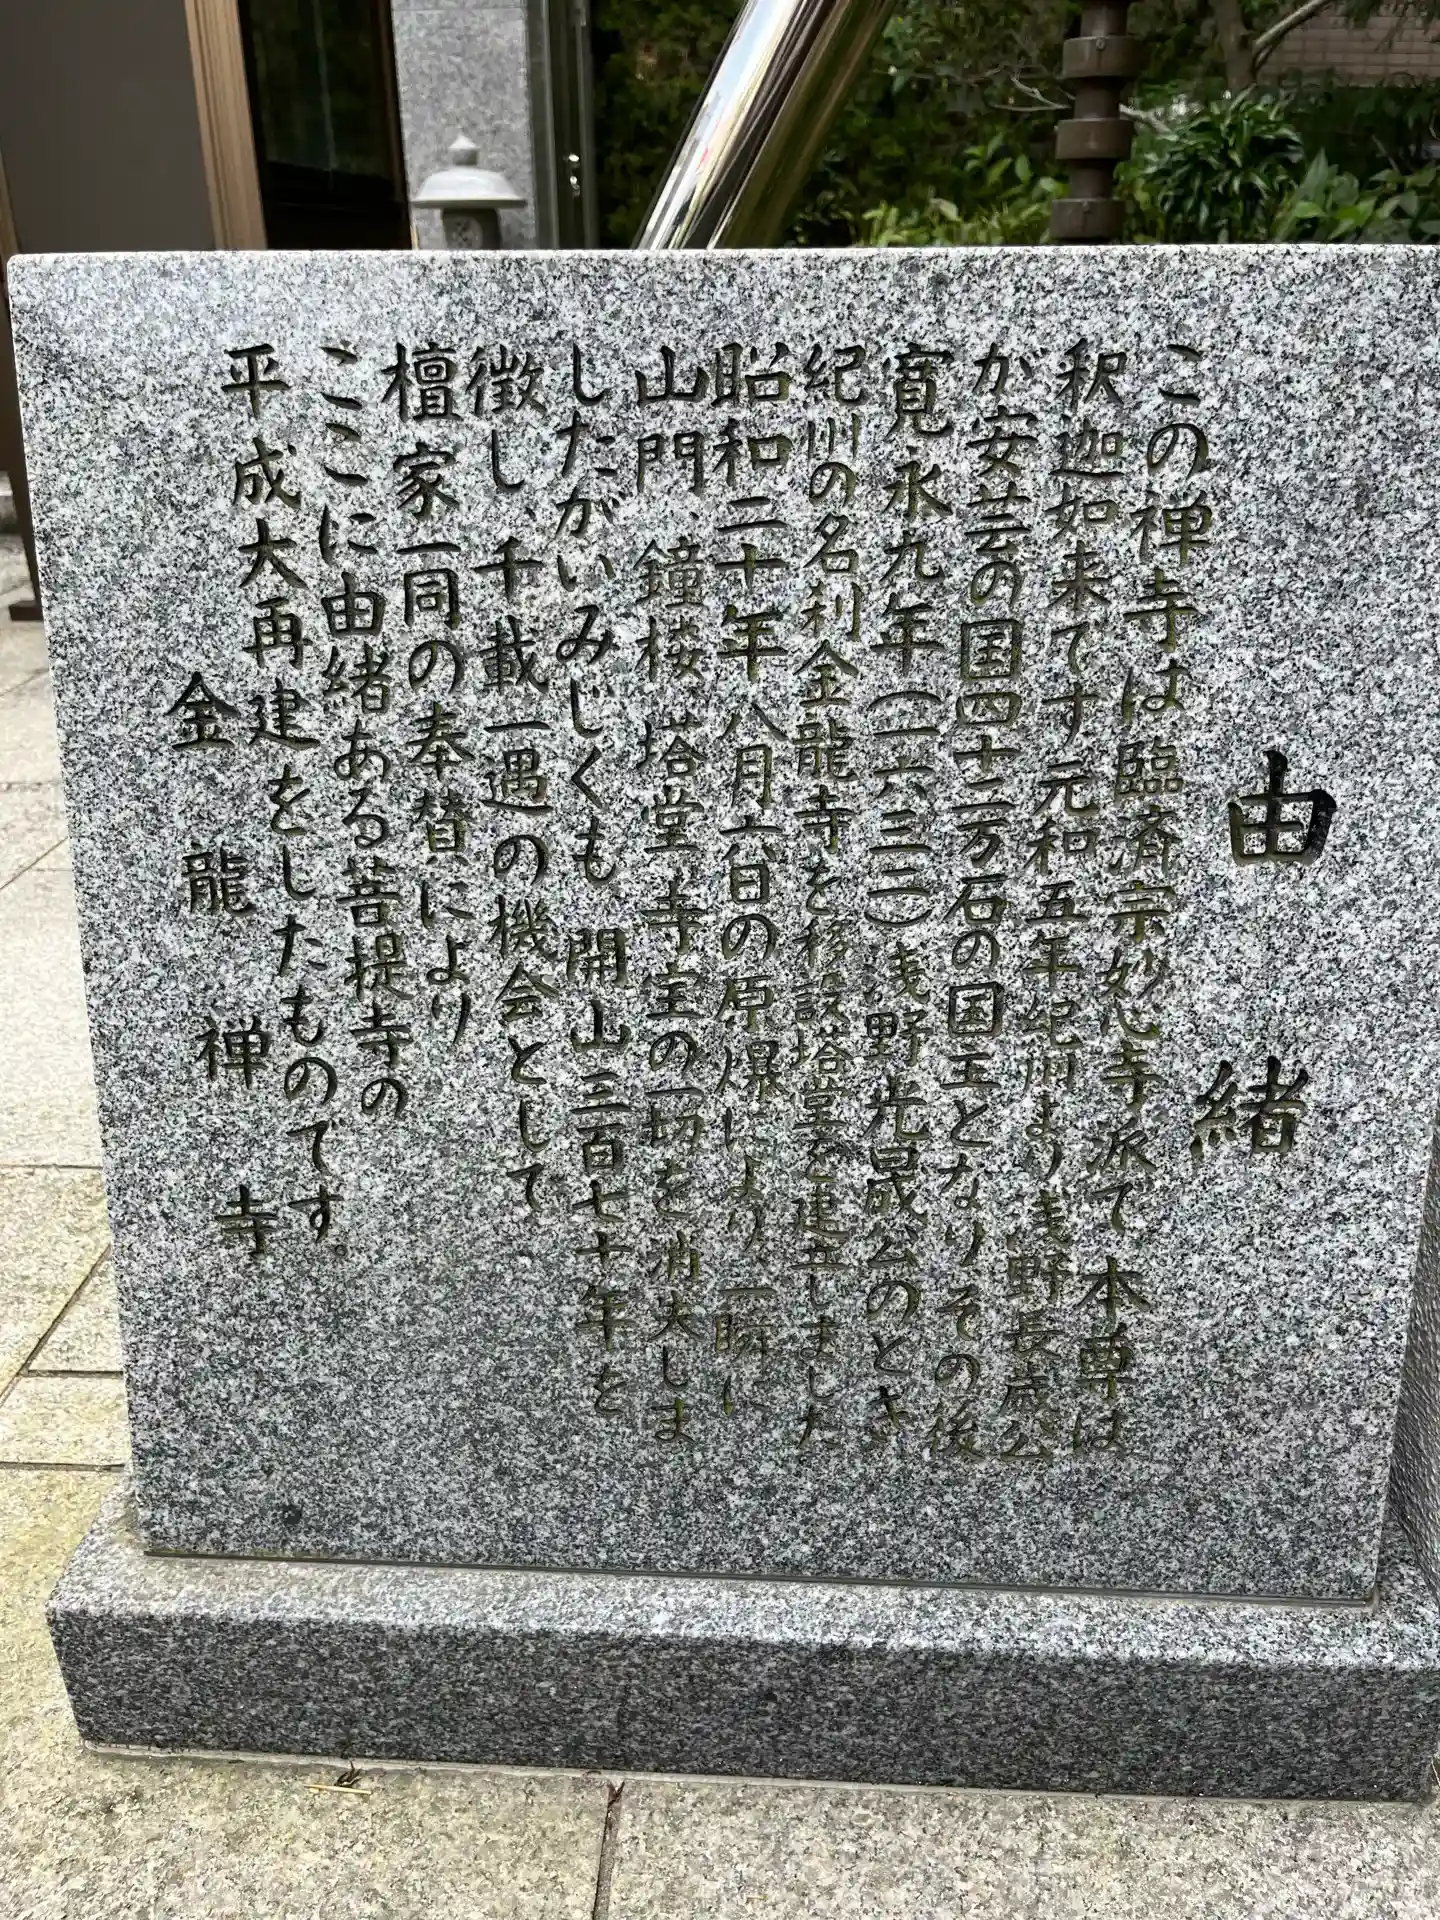 由緒
この禅寺は臨済宗妙心寺派で本尊は
釈迦如来です元和五年紀州より浅野長晟公
が安芸の国四十二万石の国主となりその後
寛永九年(一六三二)浅野光晟公のとき
紀州の名刹金龍寺を移設塔堂を建立しました
昭和二十年八月六日の原爆により、一瞬に
山門、鐘楼、塔堂、寺宝の一切を消失しま
したがいみじくも、開山三百七十年を
徴し、千載一遇の機会として
檀家一同の奉賛により
ここに由緒ある菩提寺の
平成大再建をしたものです。
金龍禅寺